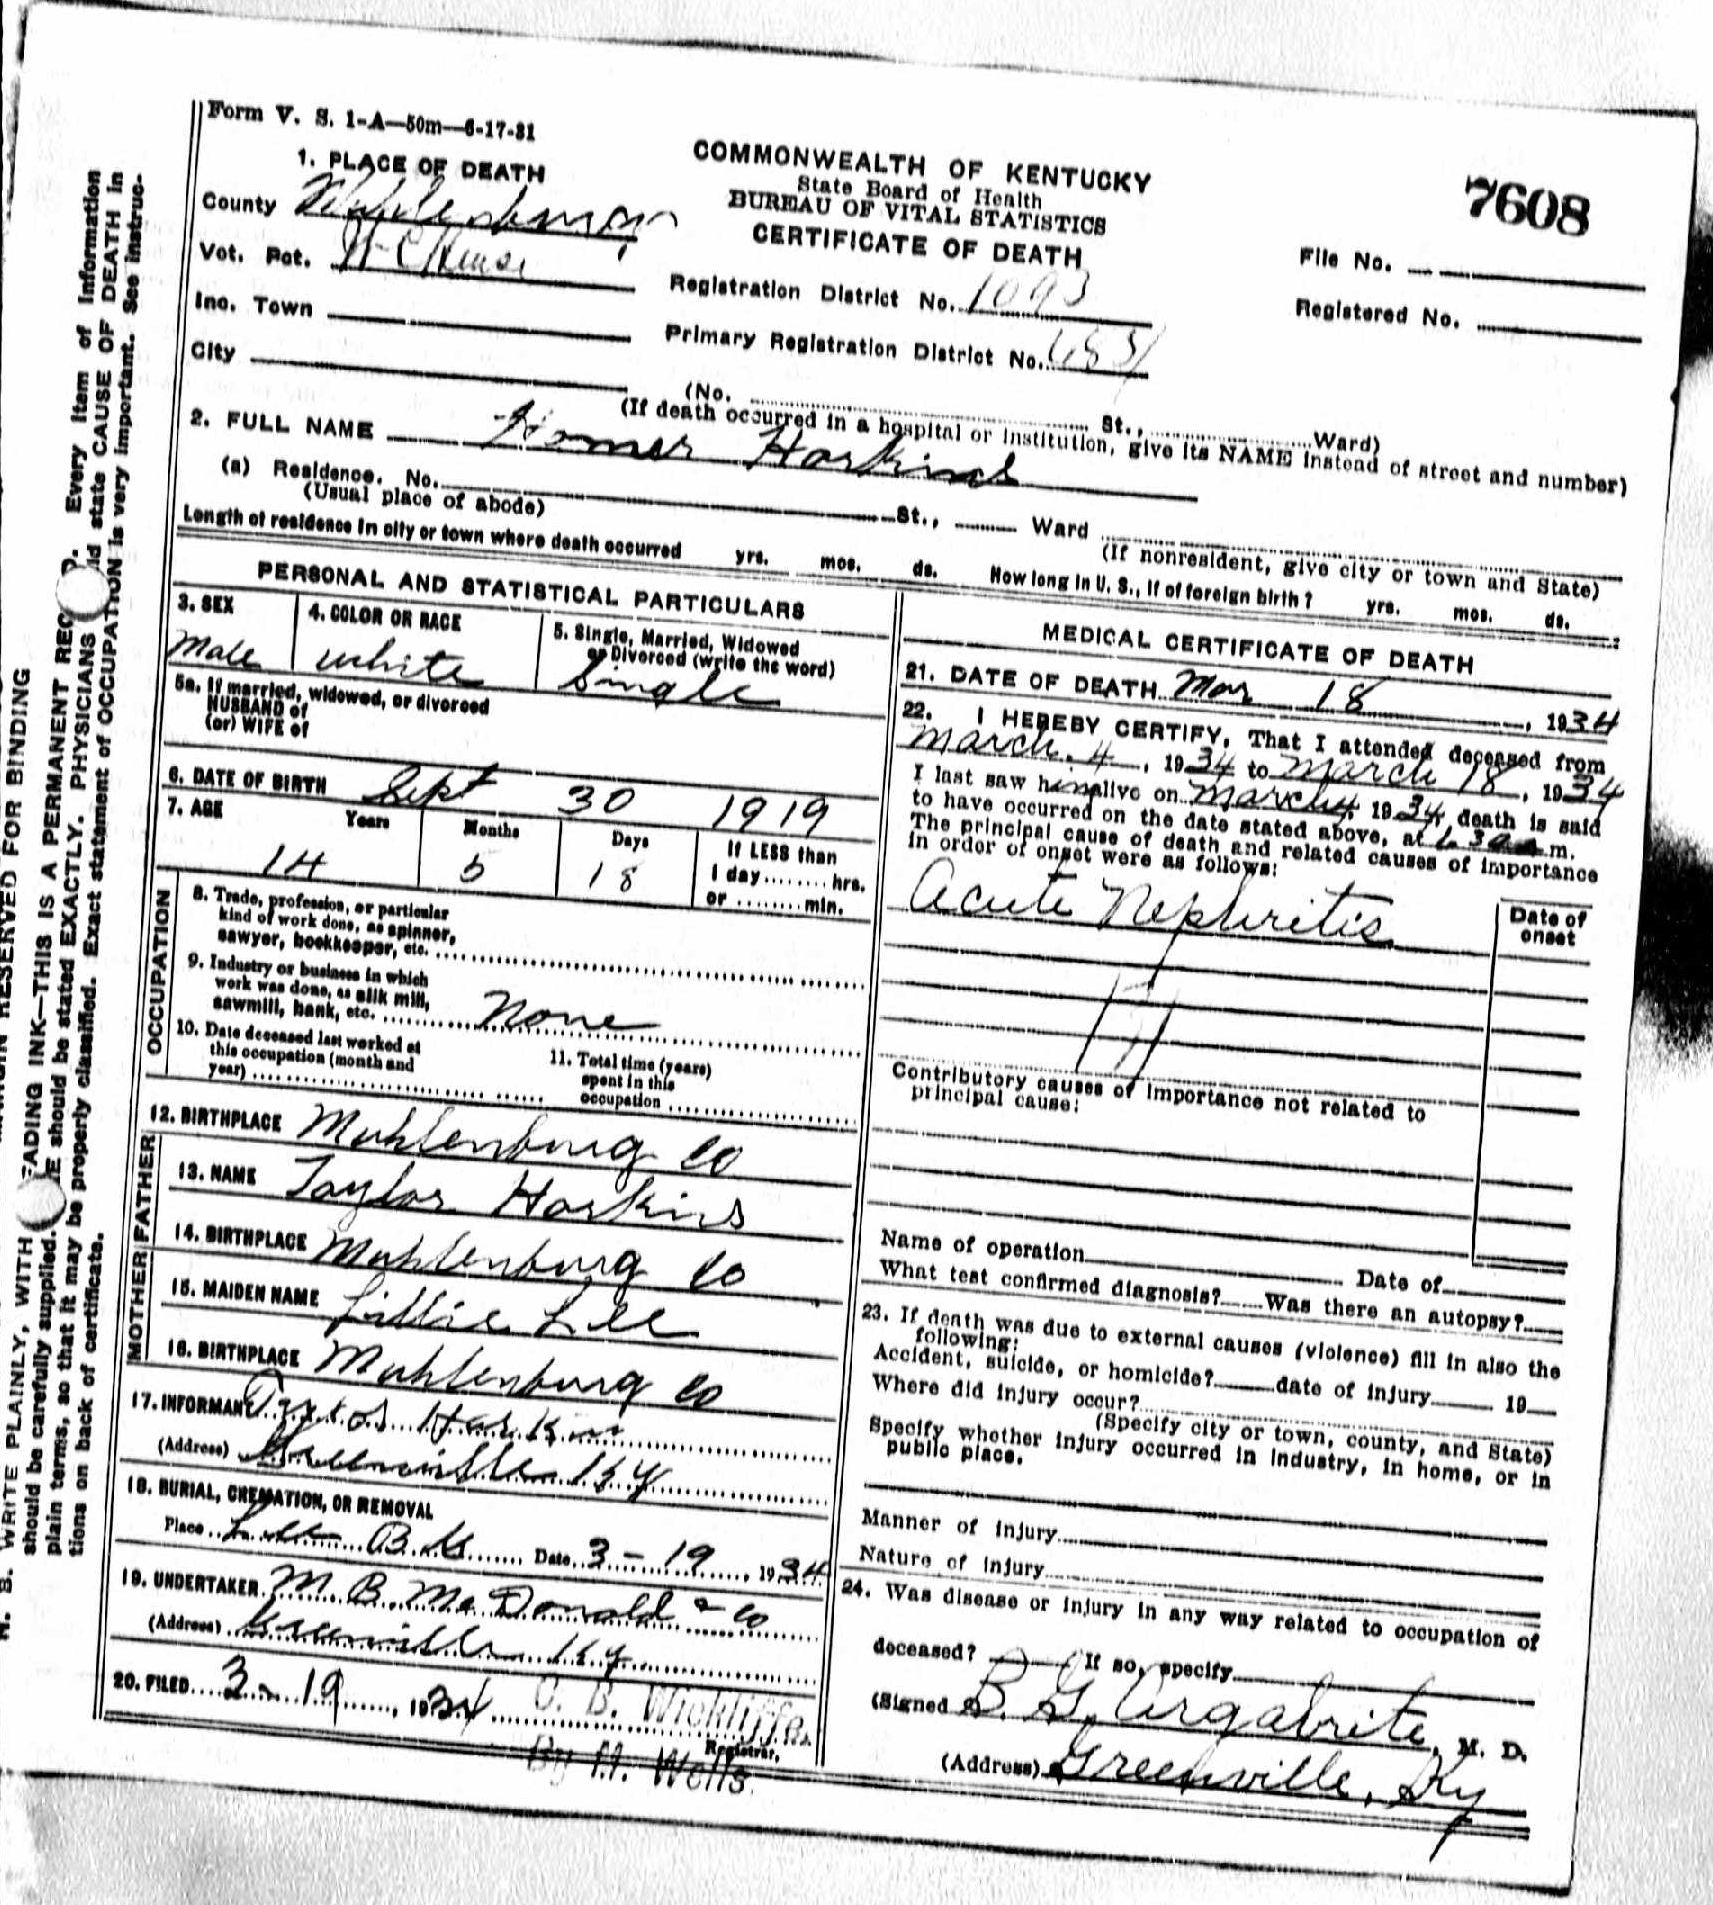 Form V. S. 1-A—50m—6-17-31
COMMONWEALTH OF KENTUCKY
State Board of Health
BUREAU OF VITAL STATISTICS
CERTIFICATE OF DEATH
7608
File No.
Registered No.
1. PLACE OF DEATH
County
Vot. Pct.
Inc. Town
City
Registration District No. 1093
Primary Registration District No.
(No. St., Ward)
(If death occurred in a hospital or institution, give its NAME instead of street and number)
2. FULL NAME Homer Harkins
(a) Residence. No. St., Ward
(Usual place of abode)
(If nonresident, give city or town and State)
Length of residence in city or town where death occurred yrs. mos. ds. How long in U. S., if of foreign birth? yrs. mos. ds.
PERSONAL AND STATISTICAL PARTICULARS
3. SEX
Male
4. COLOR OR RACE
white
5. Single, Married, Widowed
or Divorced (write the word)
Single
5a. If married, widowed, or divorced
HUSBAND of
(or) WIFE of
6. DATE OF BIRTH Sept 30 1919
7. AGE Years Months Days If LESS than
14 5 18 1 day........hrs.
or ........min.
OCCUPATION
8. Trade, profession, or particular
kind of work done, as spinner,
sawyer, bookkeeper, etc.
9. Industry or business in which
work was done, as silk mill,
sawmill, bank, etc. None
10. Date deceased last worked at
this occupation (month and
year)
11. Total time (years)
spent in this
occupation
12. BIRTHPLACE Muhlenburg Co
FATHER
13. NAME Taylor Harkins
14. BIRTHPLACE Muhlenburg Co
MOTHER
15. MAIDEN NAME Lillie Lee
16. BIRTHPLACE Muhlenburg Co
17. INFORMANT
(Address) Greenville Ky
18. BURIAL, CREMATION, OR REMOVAL
Place Date 3-19, 1934
19. UNDERTAKER M. B. McDonald & Co
(Address) Greenville Ky
20. FILED 3-19, 1934 O. B. Wickliffe
Registrar.
By H. Wells.
MEDICAL CERTIFICATE OF DEATH
21. DATE OF DEATH Mar 18, 1934
22. I HEREBY CERTIFY, That I attended deceased from
March 4, 1934 to March 18, 1934
I last saw him alive on March 1934, death is said
to have occurred on the date stated above, at m.
The principal cause of death and related causes of importance
in order of onset were as follows:
Date of
onset
Acute Nephritis
Contributory causes of importance not related to
principal cause:
Name of operation Date of
What test confirmed diagnosis? Was there an autopsy?
23. If death was due to external causes (violence) fill in also the
following:
Accident, suicide, or homicide? date of injury 19
Where did injury occur?
(Specify city or town, county, and State)
Specify whether injury occurred in industry, in home, or in
public place.
Manner of injury
Nature of injury
24. Was disease or injury in any way related to occupation of
deceased? If so, specify
(Signed B. G. Argabrite, M. D.
(Address) Greenville, Ky
WRITE PLAINLY, WITH
should be carefully supplied. should be stated EXACTLY. PHYSICIANS state CAUSE OF DEATH in
plain terms, so that it may be properly classified. Exact statement of OCCUPATION is very important. See instruc-
tions on back of certificate.
RESERVED FOR BINDING
INK—THIS IS A PERMANENT Every item of information